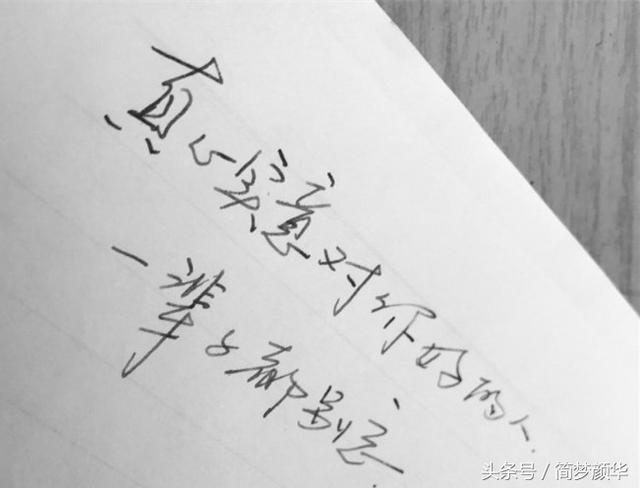 真心实意对你好的人.
一辈子都别忘.
头条号 / 简梦颜华